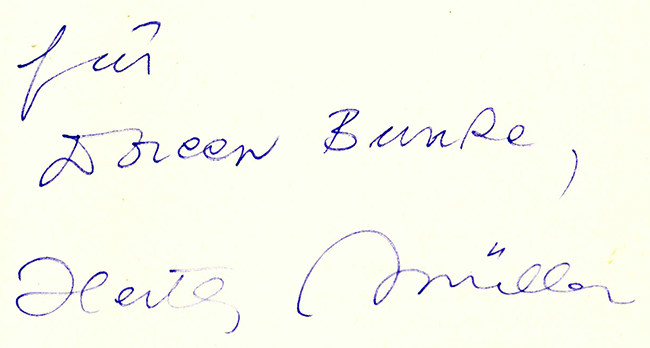 für
Doreen Bunke,
Herta Müller